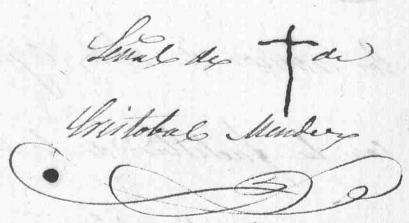 Señal de ✝ de
Cristobal Mendez